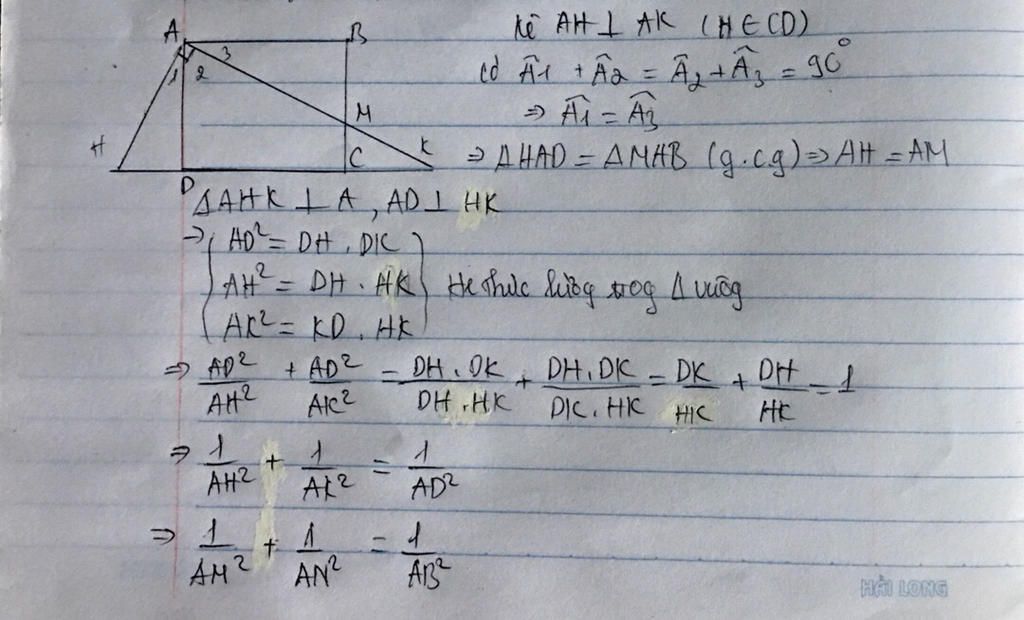 A
B
3
1
2
M
H
K
C
D
Kẻ AH ⊥ AK (H ∈ CD)
Có Â1 + Â2 = Â2 + Â3 = 90°
⇒ Â1 = Â3
⇒ ΔHAD = ΔMAB (g.c.g) ⇒ AH = AM
ΔAHK ⊥ A, AD ⊥ HK
→ AD² = DH . DK
AH² = DH . HK
AK² = KD . HK
Hệ thức lượng trog Δ vuôg
⇒ AD²/AH² + AD²/AK² = DH . DK/DH . HK + DH . DK/DK . HK = DK/HK + DH/HK = 1
⇒ 1/AH² + 1/AK² = 1/AD²
⇒ 1/AM² + 1/AN² = 1/AB²
HẢI LONG